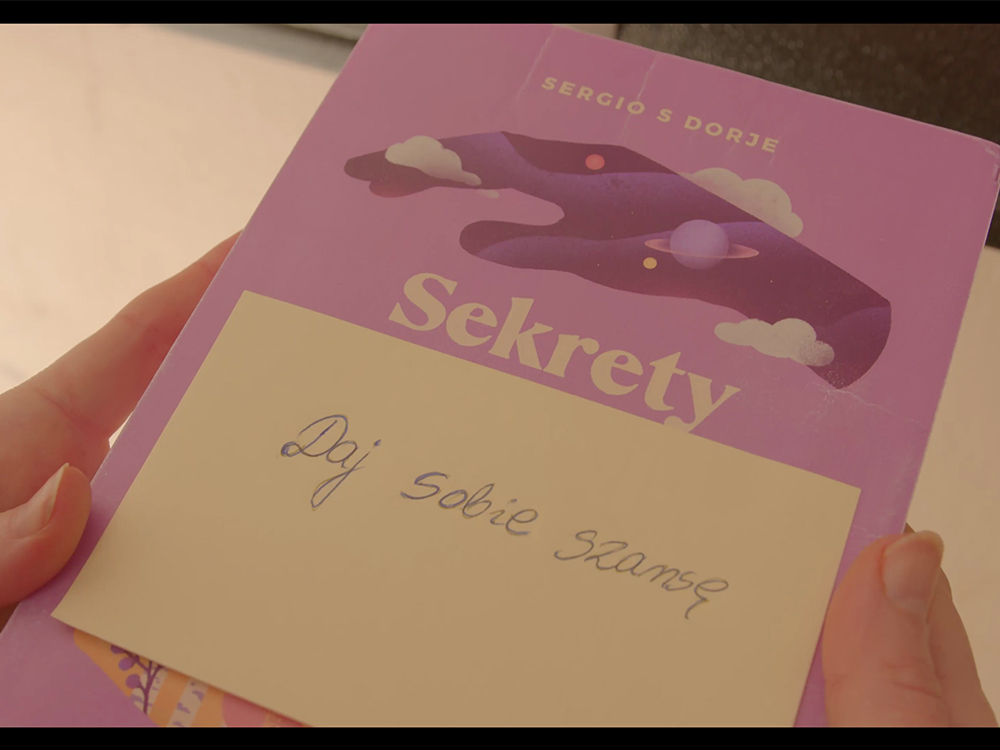 SERGIO S DORJE
Sekrety
Daj sobie szansę